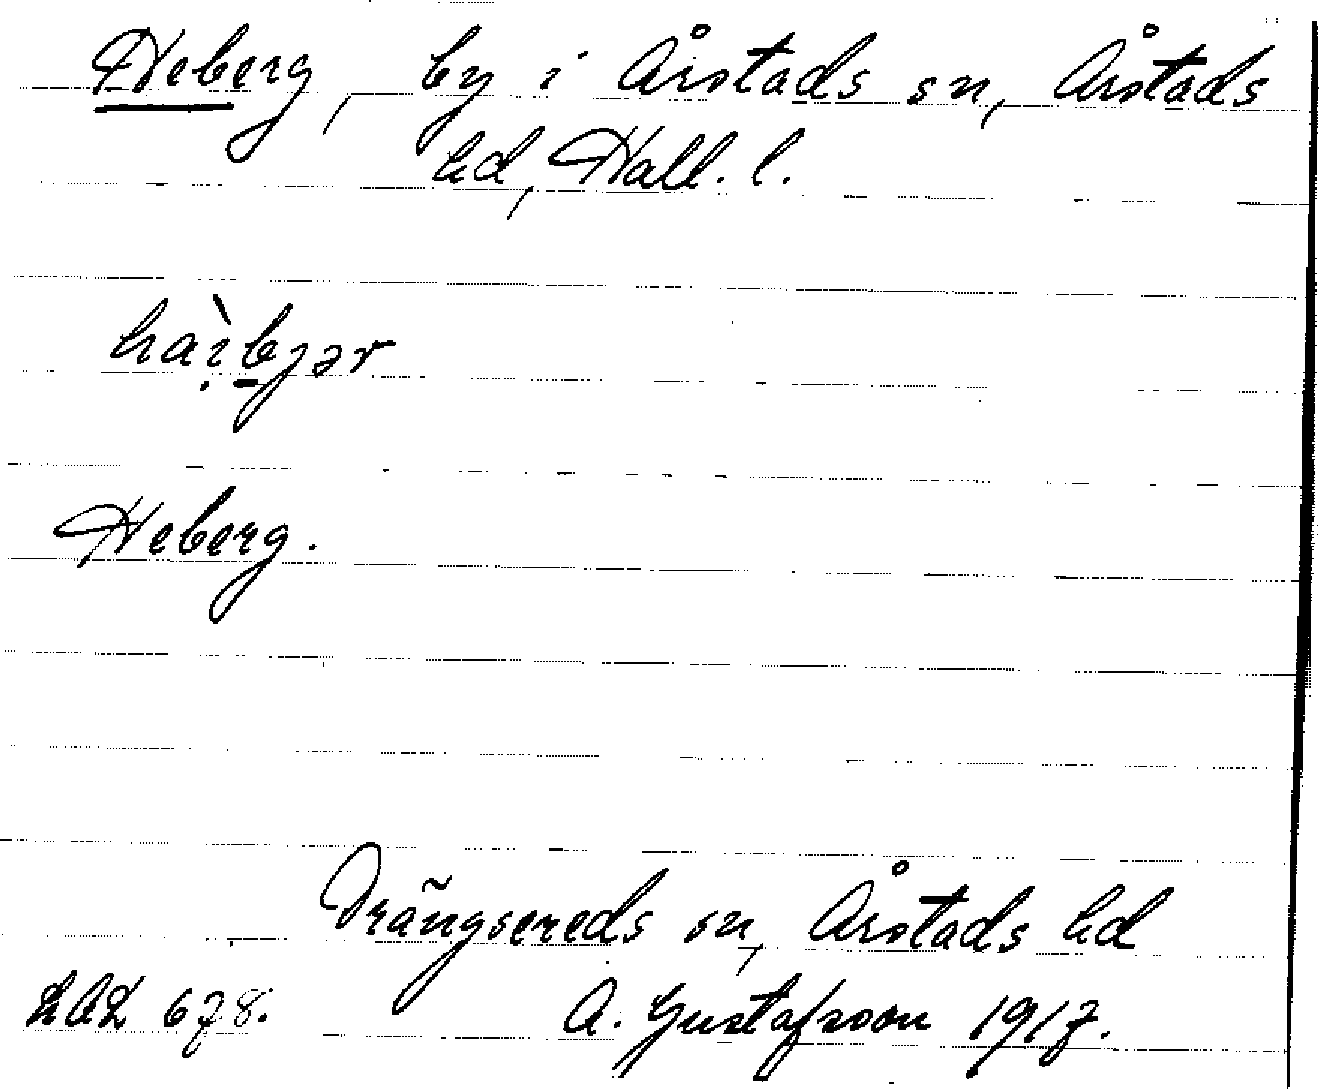 Heberg, by i Årstads sn, Årstads
hd, Hall. l.
haị̀b̠jər
Heberg.
Drängsereds sn, Årstads hd
LAL 678. A. Gustafsson 1917.